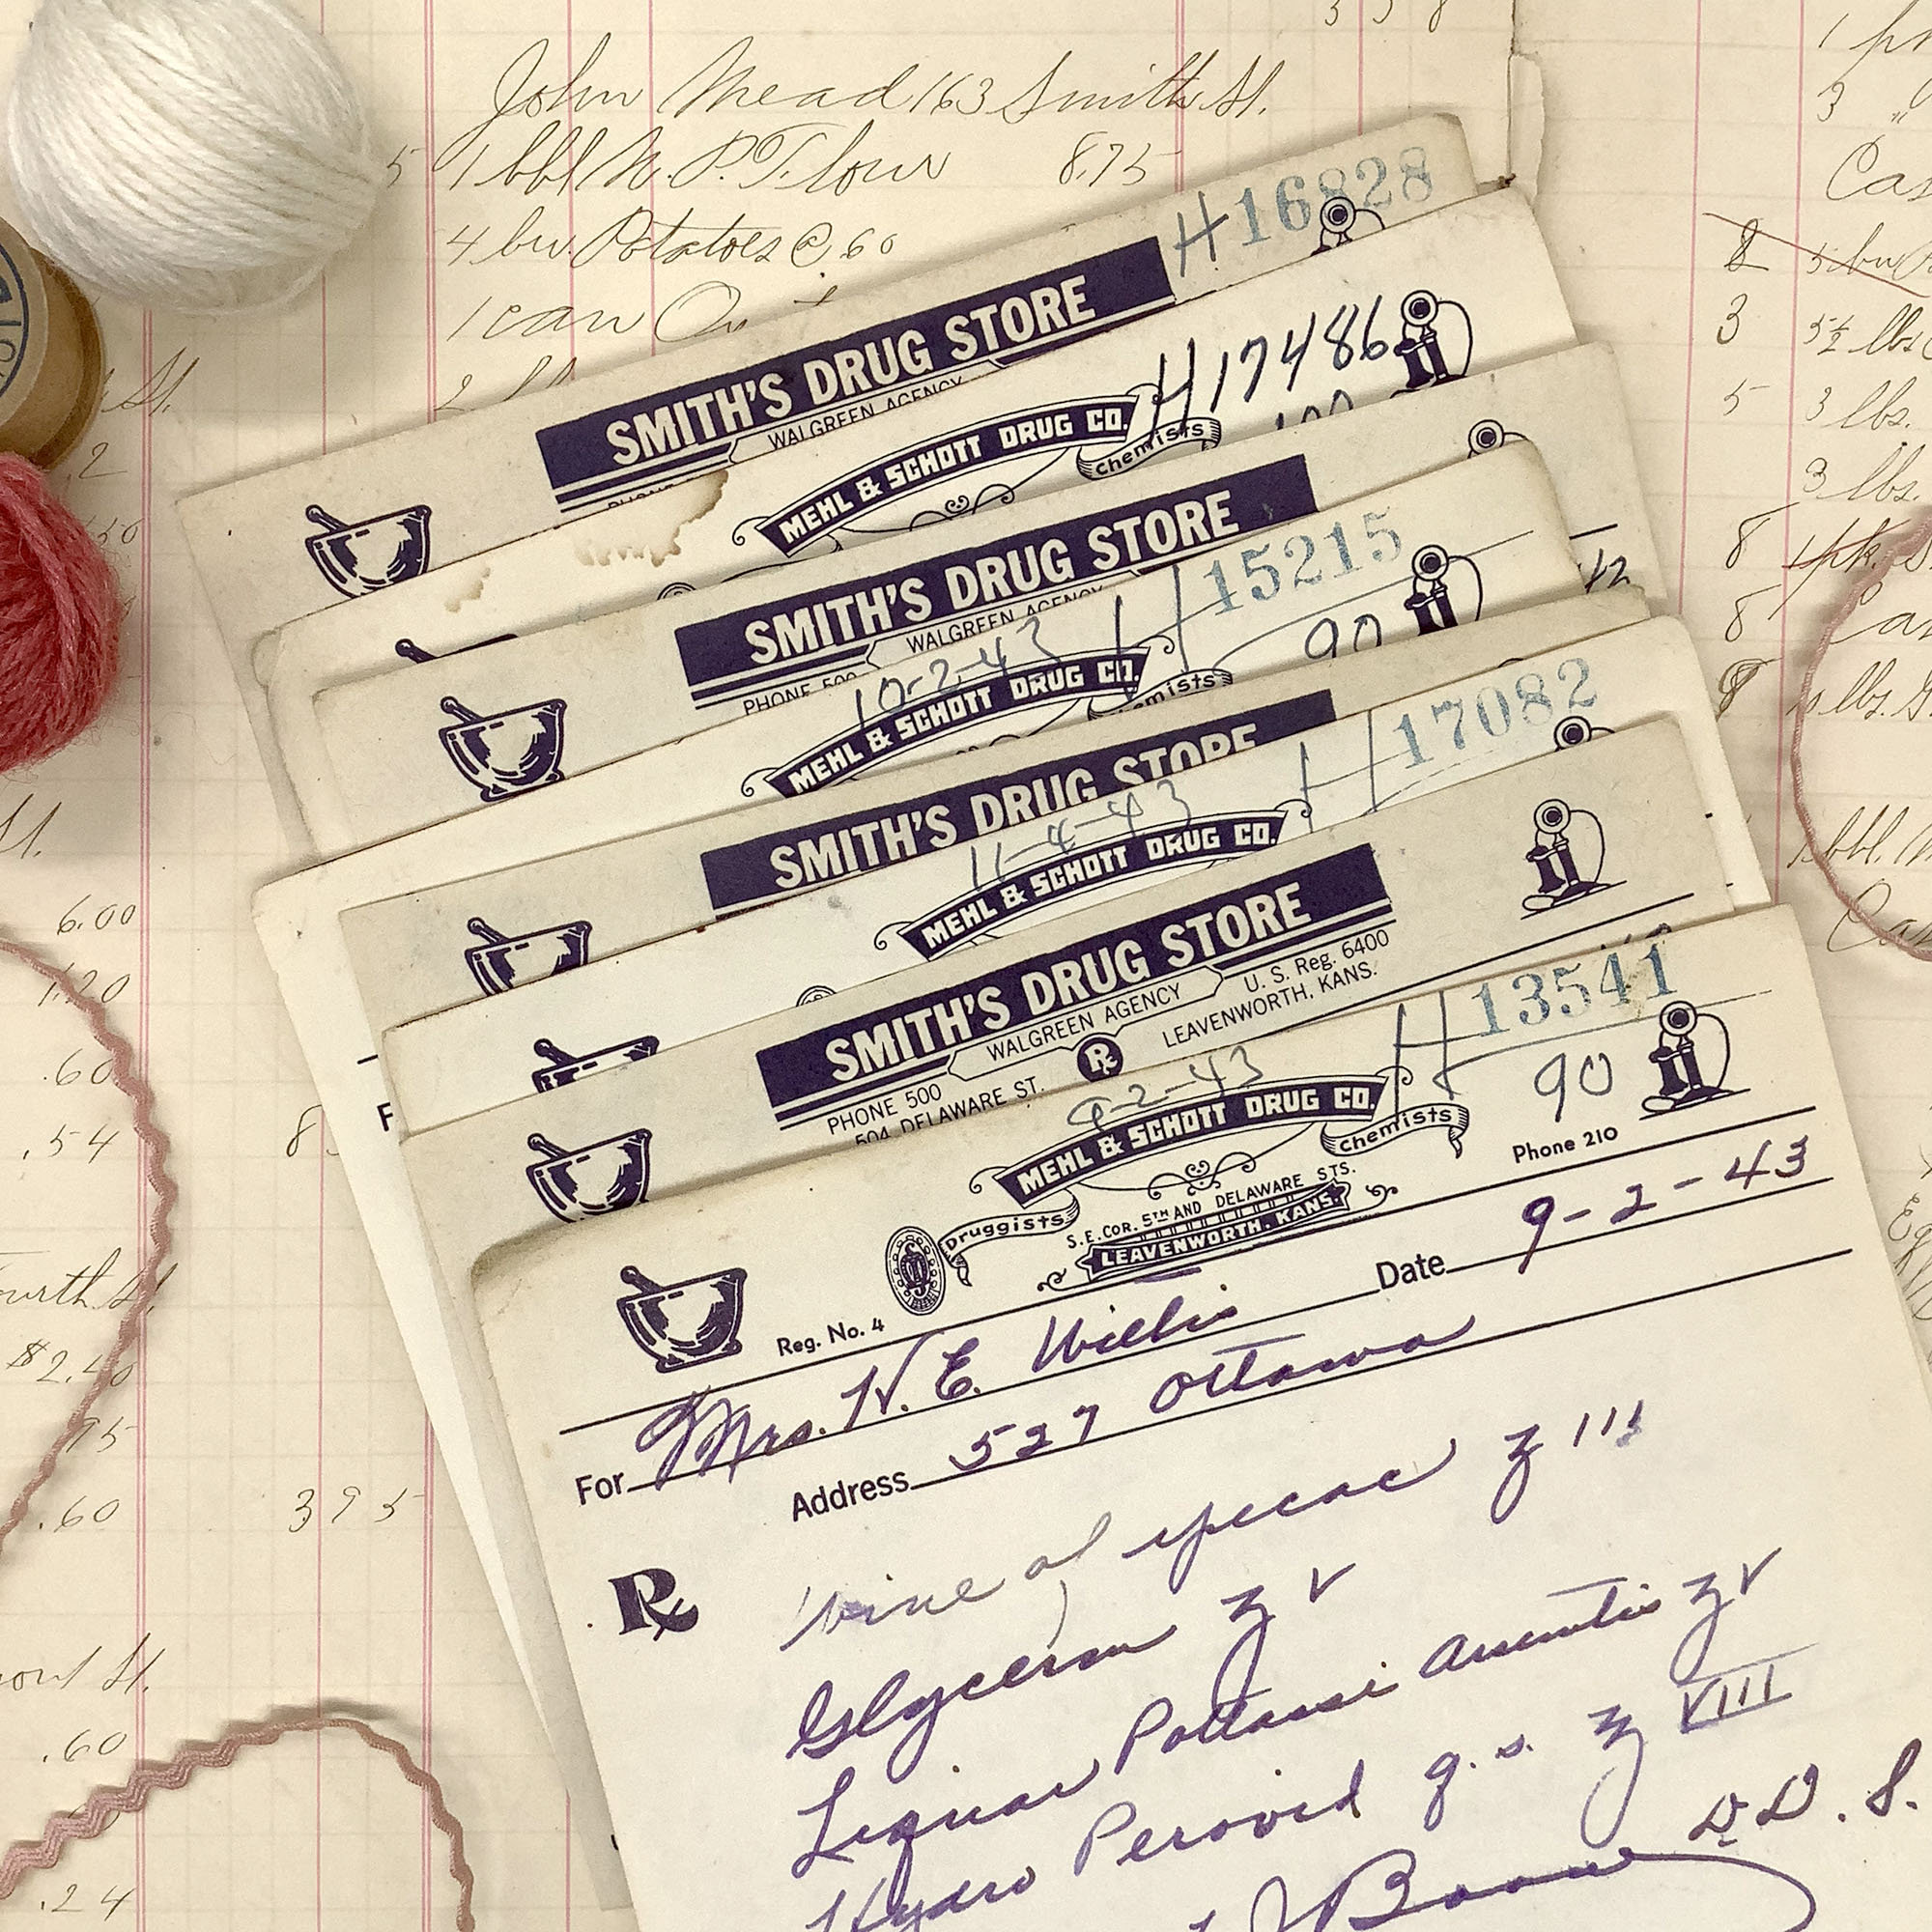 3 5 8
John Mead 163 Smith St.
5 1 bbl N. P. Flour 8.75
4 bu. Potatoes @ .60
1 can
3 "
8 5 bu
3 5½ lbs
5 3 lbs.
3 lbs.
8 1 pk.
8
8 lbs.
1 bbl.
St.
.2
.50
St.
6.00
1.20
.60
.54 8
ourth St.
$2.40
.95
.60 3 9 5
St.
.60
.24
H 16828
SMITH'S DRUG STORE
WALGREEN AGENCY
H 17486
MEHL & SCHOTT DRUG CO.
Chemists
100
SMITH'S DRUG STORE
WALGREEN AGENCY
PHONE 500
H 15215
10-2-43
90
MEHL & SCHOTT DRUG CO.
Chemists
42
SMITH'S DRUG STORE
H 17082
11-4-43
MEHL & SCHOTT DRUG CO.
F
SMITH'S DRUG STORE
WALGREEN AGENCY
U. S. Reg. 6400
PHONE 500
Rx
LEAVENWORTH, KANS.
504 DELAWARE ST.
H 13541
9-2-43
90
MEHL & SCHOTT DRUG CO.
Chemists
Phone 210
Druggists
S.E. COR. 5TH AND DELAWARE STS.
LEAVENWORTH, KANS.
Reg. No. 4
For Mrs. N. E. Willis Date 9-2-43
Address 527 Ottawa
Rx
Wine of ipecac ʒ iii
Glycerin ʒ v
Liquor Potassi Arsenitis ʒ v
Hydro Peroxid q.s. ℥ VIII
Boone D.D.S.